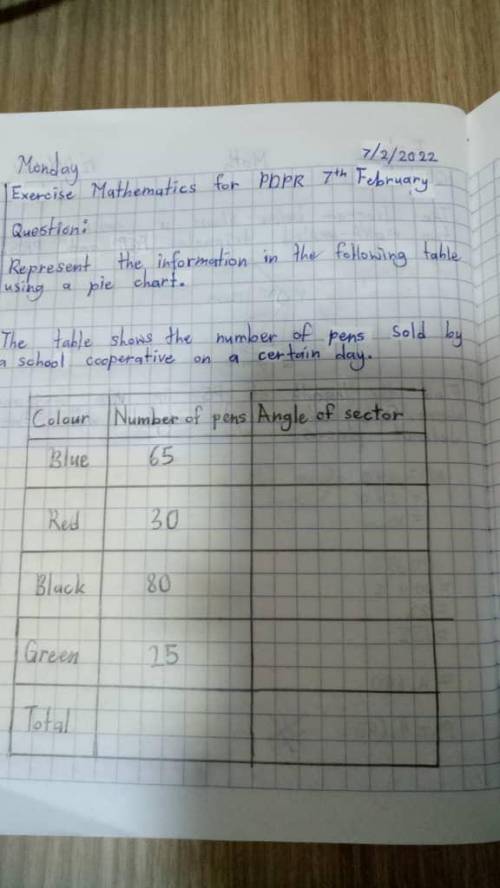 Monday 7/2/2022
Exercise Mathematics for PDPR 7th February
Question:
Represent the information in the following table
using a pie chart.
The table shows the number of pens sold by
a school cooperative on a certain day.
Colour Number of pens Angle of sector
Blue 65
Red 30
Black 80
Green 25
Total